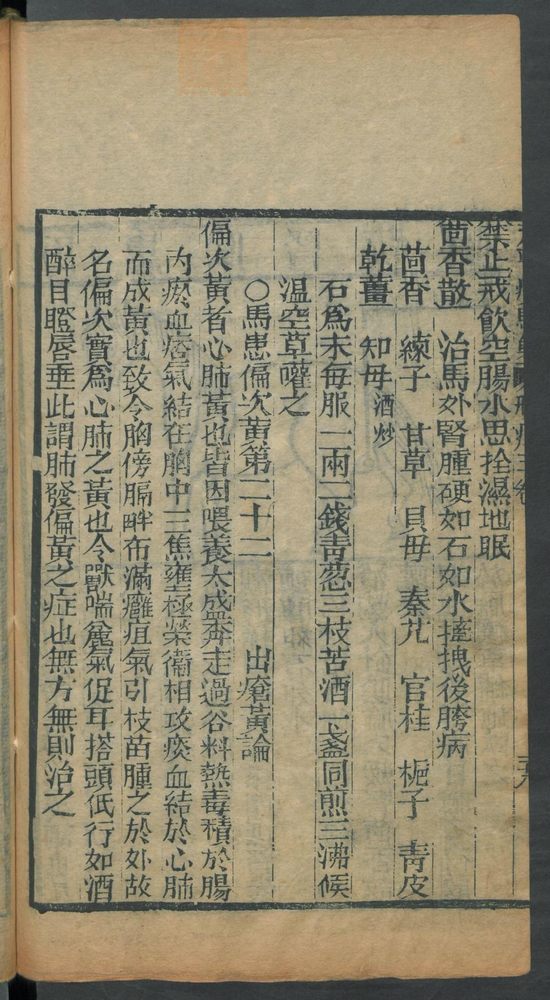 禁止戒飲空腸水思拴濕地眠
茴香散　治馬外腎腫硬如石如水搖拽後胯病
茴香　練子　甘草　貝母　秦艽　官桂　梔子　青皮
乾薑　知母酒炒
石爲末每服一兩二錢靑葱三枝苦酒一盞同煎三沸候
温空草嚾之
○馬患偏次黄第二十二　　出瘡黃論
偏次黃者心肺黃也皆因喂養太盛奔走過谷料熱毒積於腸
内瘀血痞氣結在胸中三焦壅極榮衛相攻痰血結於心肺
而成黃也致令胸傍膈畔布滿癰疽氣引枝苗腫之於外故
名偏次實爲心肺之黃也令獸喘麄氣促耳搭頭低行如酒
醉目瞪唇垂此謂肺發偏黃之症也無方無則治之